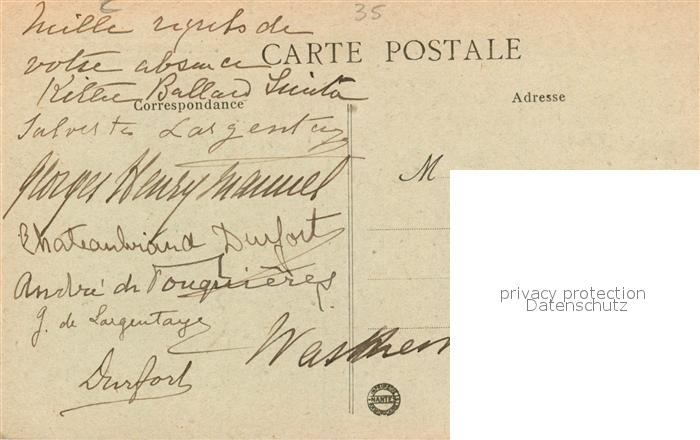 35
Mille regrets de
votre absence
CARTE POSTALE
Ballard
Correspondance
Adresse
Largentaye
M
Georges Henry Manuel
Chateaubriand Durfort
André de Fouquières
G. de Largentaye
Durfort
privacy protection
Datenschutz
NANTES